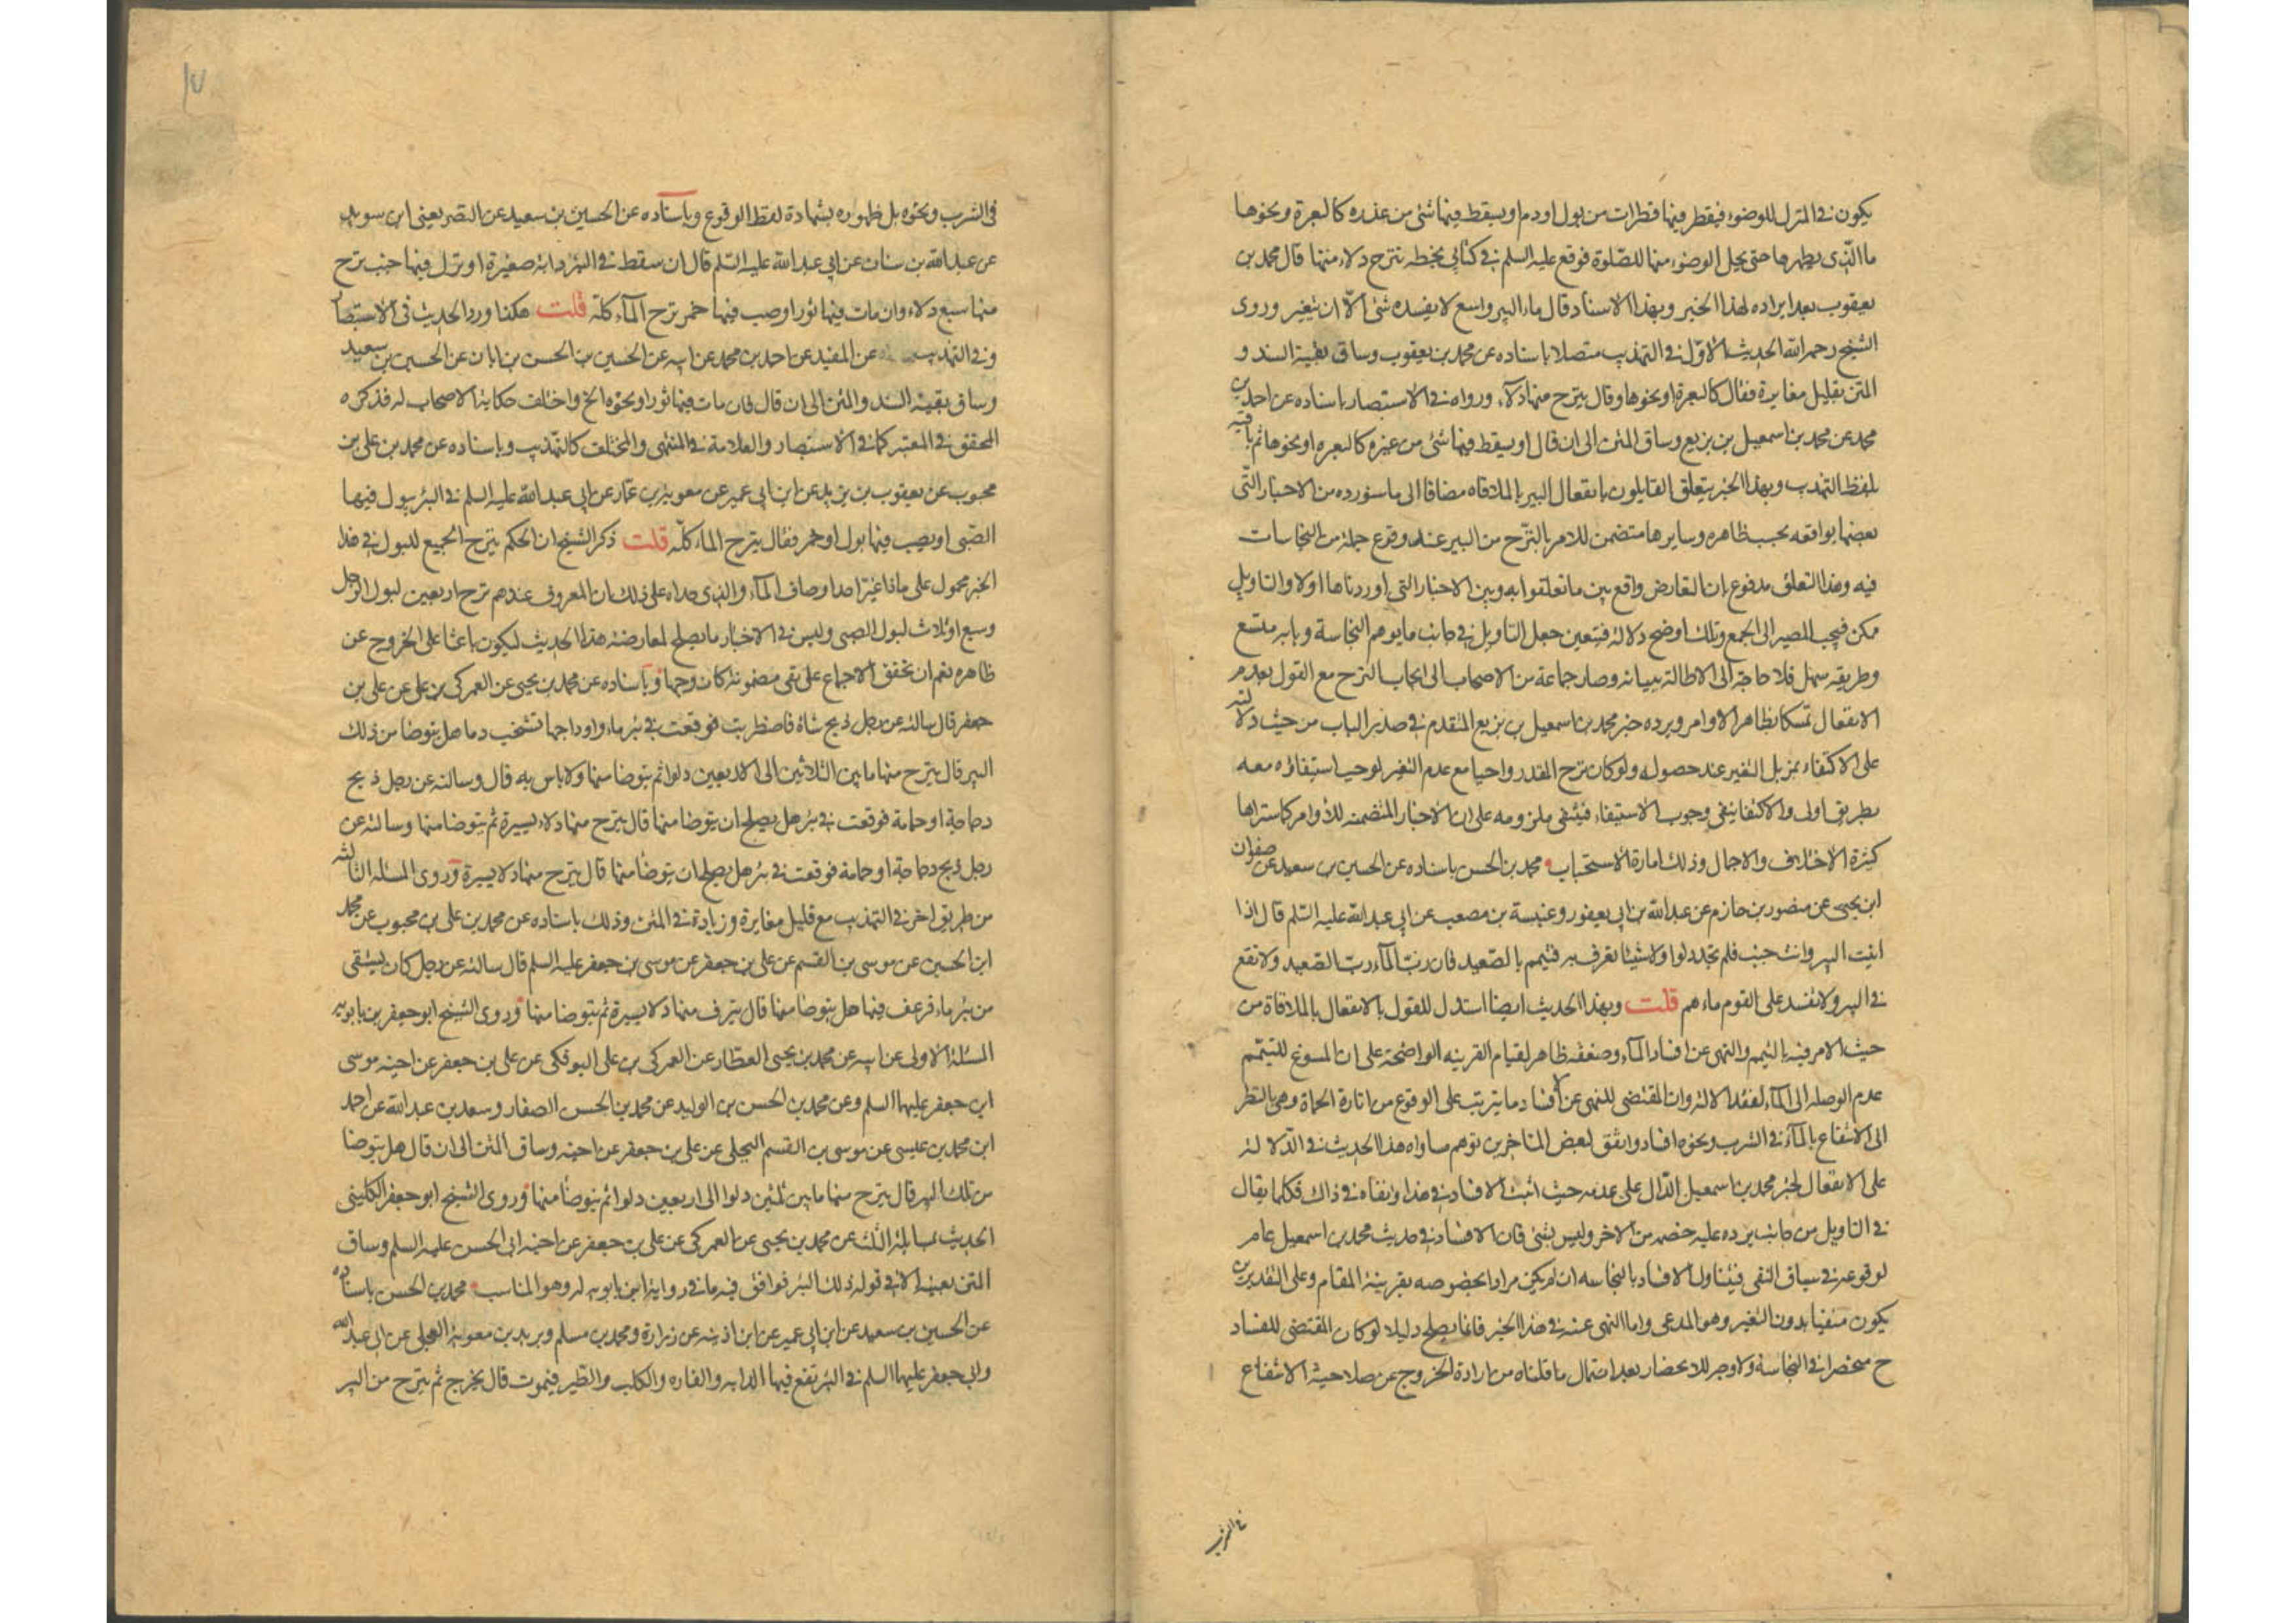 يكون في المنزل للوضوء فيقطر فيها قطرات من بول او دم او يسقط فيها شئ من عذره كالبعرة ونحوها
ما الذي يطهرها حتى يحل الوضوء منها للصلوة فوقع عليه السلم في كتابي بخطه تنزح دلاء منها قال محمد بن
يعقوب بعد ايراده لهذا الخبر وبهذا الاسناد قال ماء البير واسع لا يفسده شئ الا ان يتغير وروى
الشيخ رحمه الله الحديث الاول في التهذيب متصلا باسناده عن محمد بن يعقوب وساق بقية السند و
المتن بقليل مغايرة فقال كالبعرة او نحوها وقال ينزح منها دلاء ورواه في الاستبصار باسناده عن احمد بن
محمد عن محمد بن اسمعيل بن بزيع وساق المتن الى ان قال او يسقط فيها شئ من غيره كالبعره او نحوها ثم باقيه
بلفظ التهذيب وبهذا الخبر يتعلق القايلون بانفعال البير بالملاقاه مضافا الى ما سنورده من الاخبار التي
بعضها يوافقه بحسب ظاهره وسايرها متضمن للامر بالنزح من البير عند وقوع جملة من النجاسات
فيه وهذا التعلق مدفوع بان التعارض واقع بين ما تعلقوا به وبين الاخبار التي اوردناها اولا والتاويل
مكن فيجب المصير الى الجمع وتلك اوضح دلالة فتعين جعل التاويل في جانب ما يوهم النجاسة وبابه متسع
وطريقه سهل فلا حاجة الى الاطالة ببيانه وصار جماعة من الاصحاب الى ايجاب النزح مع القول بعدم
الانفعال تمسكا بظاهر الاوامر ويرده خبر محمد بن اسمعيل بن بزيع المتقدم في صدر الباب من حيث دلالته
على الاكتفاء بمزيل التغير عند حصوله ولو كان نزح المقدر واجبا مع عدم التغير لوجب استيفاؤه معه
بطريق اولى والاكتفا ينفي وجوب الاستيفاء فينتفي ملزومه على ان الاخبار المتضمنه للاوامر كما ستراها
كثيرة الاختلاف والاجمال وذلك امارة الاستحباب محمد بن الحسن باسناده عن الحسين بن سعيد عن صفوان
ابن يحيى عن منصور بن حازم عن عبد الله بن ابي يعفور وعنبسة بن مصعب عن ابي عبد الله عليه السلم قال اذا
اتيت البير وانت جنب فلم تجد دلوا ولا شيئا تغرف به فتيمم بالصعيد فان رب الماء رب الصعيد ولا تقع
في البير ولا تفسد على القوم ماءهم قلت وبهذا الحديث ايضا استدل للقول بالانفعال بالملاقاة من
حيث الامر فيه بالتيمم والنهي عن افساد الماء وضعفه ظاهر لقيام القرينه الواضحة على ان المسوغ للتيمم
عدم الوصله الى الماء لفقد الالة وان المقتضي للنهي عن الافساد ما يترتب على الوقوع من اثارة الحماة وهي بالنظر
الى الانتفاع بالماء في الشرب ونحوه افساد واتفق لبعض المتاخرين توهم مساواه هذا الحديث في الدلالة
على الانفعال لخبر محمد بن اسمعيل الدال على عدمه حيث اثبت الافساد في هذا ونفاه في ذاك فكلما يقال
في التاويل من جانب يرده عليه خصمه من الاخر وليس بشئ فان الافساد في حديث محمد بن اسمعيل عام
لوقوعه في سياق النفي فيتناول الافساد بالنجاسه ان لم يكن مرادا بخصوصه بقرينة المقام وعلى التقديرين
يكون منفيا بدون التغير وهو المدعى واما النهي عنه في هذا الخبر فانما يصلح دليلا لو كان المقتضي للفساد
ح منحصرا في النجاسة ولا وجه للانحصار بعد احتمال ما قلناه من ارادة الخروج عن صلاحية الانتفاع
في الشرب
١٧
في الشرب ونحوه بل ظهوره بشهادة لفظ الوقوع وباسناده عن الحسين بن سعيد عن النضر يعني ابن سويد
عن عبد الله بن سنان عن ابي عبد الله عليه السلم قال ان سقط في البئر دابة صغيرة او نزل فيها جنب نزح
منها سبع دلاء وان مات فيها ثور او صب فيها خمر نزح الماء كله قلت هكذا ورد الحديث في الاستبصار
وفي التهذيب عن المفيد عن احمد بن محمد عن ابيه عن الحسين بن الحسن بن ابان عن الحسين بن سعيد
وساق بقية السند والمتن الى ان قال فان مات فيها ثور او نحوه الخ واختلف حكاية الاصحاب له فذكره
المحقق في المعتبر كما في الاستبصار والعلامة في المنتهى والمختلف كالتهذيب وباسناده عن محمد بن علي بن
محبوب عن يعقوب بن يزيد عن ابن ابي عمير عن معوية بن عمار عن ابي عبد الله عليه السلم في البئر يبول فيها
الصبي او يصب فيها بول او خمر فقال ينزح الماء كله قلت ذكر الشيخ ان الحكم بنزح الجميع للبول في هذا
الخبر محمول على ما اذا غير احد اوصاف الماء والذي حداه على ذلك ان المعروف عندهم نزح اربعين لبول الرجل
وسبع او ثلاث لبول الصبي وليس في الاخبار ما يصلح لمعارضة هذا الحديث ليكون باعثا على الخروج عن
ظاهره نعم ان تحقق الاجماع على نفي مضمونه كان وجها وباسناده عن محمد بن يحيى عن العمركي بن علي عن علي بن
جعفر قال سالته عن رجل ذبح شاة فاضطربت فوقعت في بئر ماء واوداجها تشخب دما هل يتوضا من ذلك
البير قال ينزح منها ما بين الثلاثين الى الاربعين دلوا ثم يتوضا منها ولا باس به قال وسالته عن رجل ذبح
دجاجة او حمامة فوقعت في بئر هل يصلح ان يتوضا منها قال ينزح منها دلاء يسيرة ثم يتوضا منها وسالته عن
رجل ذبح دجاجة او حمامة فوقعت في بئر هل يصلح ان يتوضا منها قال ينزح منها دلا يسيرة وروى المسئله الثالثه
من طريق اخر في التهذيب مع قليل مغايرة وزيادة في المتن وذلك باسناده عن محمد بن علي بن محبوب عن محمد
ابن الحسين عن موسى بن القسم عن علي بن جعفر عن موسى بن جعفر عليه السلم قال سالته عن رجل كان يستقى
من بئر ماء فرعف فيها هل يتوضا منها قال ينزف منها دلا يسيرة ثم يتوضا منها وروى الشيخ ابو جعفر بن بابويه
المسئلة الاولى عن ابيه عن محمد بن يحيى العطار عن العمركي بن علي البوفكي عن علي بن جعفر عن اخيه موسى
ابن جعفر عليهما السلم وعن محمد بن الحسن بن الوليد عن محمد بن الحسن الصفار وسعد بن عبد الله عن احمد
ابن محمد بن عيسى عن موسى بن القسم البجلي عن علي بن جعفر عن اخيه وساق المتن الى ان قال هل يتوضا
من تلك البير قال ينزح منها ما بين ثلثين دلوا الى اربعين دلوا ثم يتوضا منها وروى الشيخ ابو جعفر الكليني
الحديث بمسائله الثلث عن محمد بن يحيى عن العمركي عن علي بن جعفر عن اخيه ابي الحسن عليه السلم وساق
المتن بعينه الا في قوله ذلك البئر فوافق فيه ما في رواية ابن بابويه له وهو المناسب محمد بن الحسن باسناده
عن الحسين بن سعيد عن ابن ابي عمير عن ابن اذينه عن زرارة ومحمد بن مسلم وبريد بن معوية العجلي عن ابي عبد الله
وابي جعفر عليهما السلم في البئر تقع فيها الدابه والفاره والكلب والطير فيموت قال يخرج ثم ينزح من البير